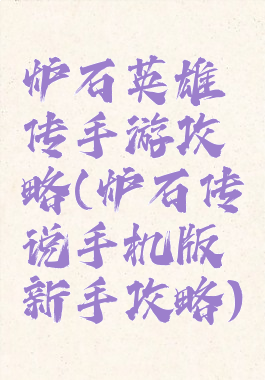 炉石英雄
传手游攻
略(炉石传
说手机版
新手攻略)